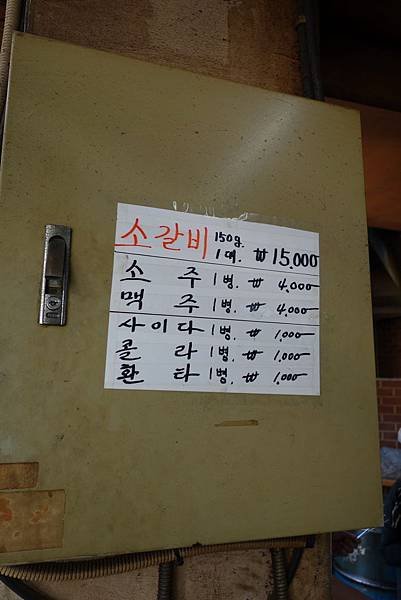 소갈비 150g. 1대. ₩ 15,000
소 주 1병. ₩ 4,000
맥 주 1병. ₩ 4,000
사이다 1병. ₩ 1,000
콜 라 1병. ₩ 1,000
환 타 1병. ₩ 1,000